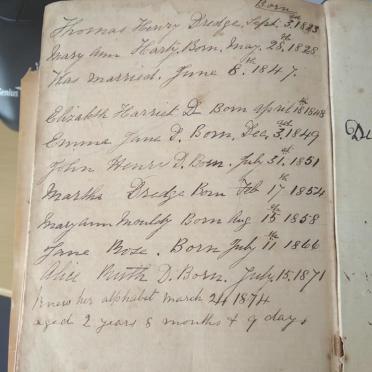 Born
Thomas Henry Dredge. Sept. 3rd. 1823
Mary Ann Harty. Born. May. 28th. 1828
Was married. June 8th. 1847.
Elizabth Harriet D Born April 18th 1848
Emma Jane D. Born. Dec. 3rd. 1849
John Henry D. Born. July 31st. 1851
Martha Dredge Born Feb 17th 1854
Mary ann Mouldy Born Aug 15th 1858
Jane Rose. Born July 11th 1866
Alice Ruth D. Born. July. 15. 1871
knew her alphabet march 24 1874
aged 2 years 8 months & 9 days
Genius